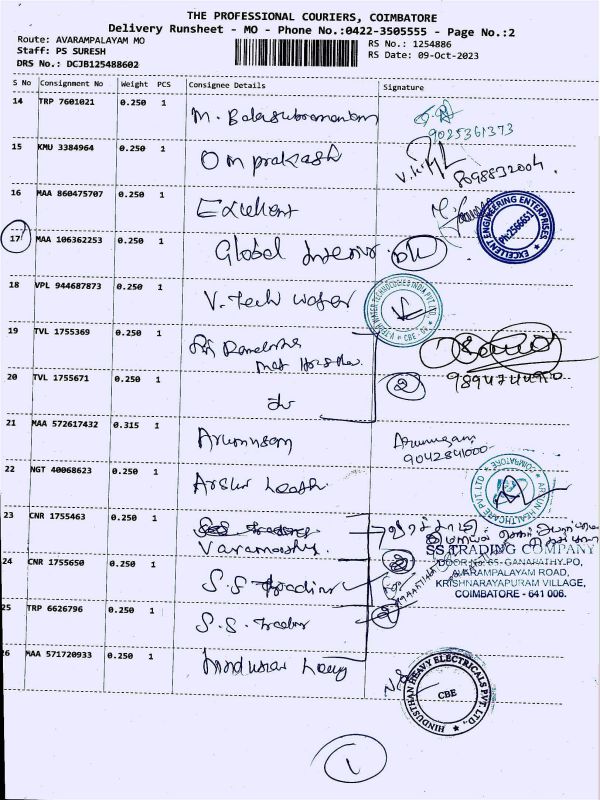 THE PROFESSIONAL COURIERS, COIMBATORE
Delivery Runsheet - MO - Phone No.:0422-3505555 - Page No.:2
Route: AVARAMPALAYAM MO
RS No.: 1254886
Staff: PS SURESH
RS Date: 09-Oct-2023
DRS No.: DCJB125488602
S No Consignment No Weight PCS Consignee Details Signature
14 TRP 7601021 0.250 1 M. Balasubramaniam
9025361373
15 KMU 3384964 0.250 1 Omprakash
8098832004
16 MAA 860475707 0.250 1 Excellent
EXCELLENT ENGINEERING ENTERPRISES
Ph:2566651
17 MAA 106362253 0.250 1 Global Interior
18 VPL 944687873 0.250 1 V. Tech Water
CBE
19 TVL 1755369 0.250 1
20 TVL 1755671 0.250 1
2
21 MAA 572617432 0.315 1 Arumugam Arumugam
9042841000
22 NGT 40068623 0.250 1
ARJUN HEALTHCARE PVT.LTD
COIMBATORE
23 CNR 1755463 0.250 1
24 CNR 1755650 0.250 1 S.S. Trading
SS TRADING COMPANY
DOOR No: 65- GANAPATHY.PO,
AVARAMPALAYAM ROAD,
KRISHNARAYAPURAM VILLAGE,
COIMBATORE - 641 006.
25 TRP 6626796 0.250 1 S.S. Trading
26 MAA 571720933 0.250 1 Hindustan Heavy
HINDUSTHAN HEAVY ELECTRICALS PVT. LTD.,
CBE
1